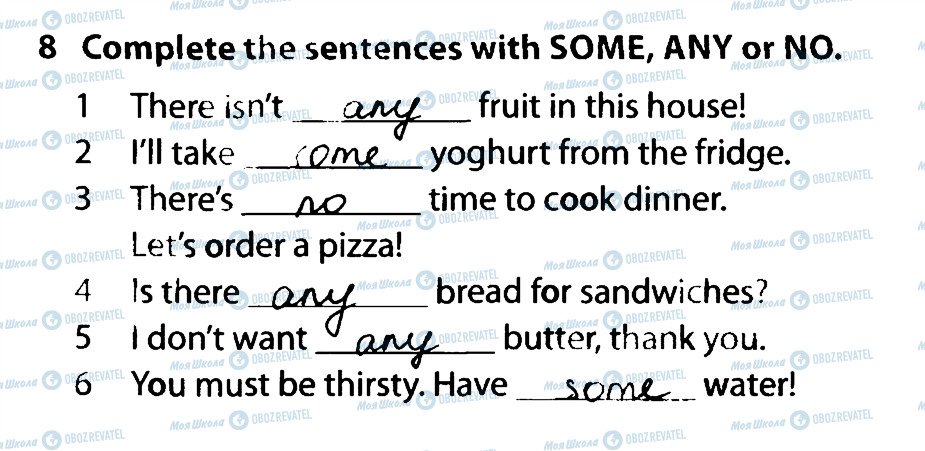 8 Complete the sentences with SOME, ANY or NO.
1 There isn't any fruit in this house!
2 I'll take some yoghurt from the fridge.
3 There's no time to cook dinner.
Let's order a pizza!
4 Is there any bread for sandwiches?
5 I don't want any butter, thank you.
6 You must be thirsty. Have some water!
Моя Школа OBOZREVATEL